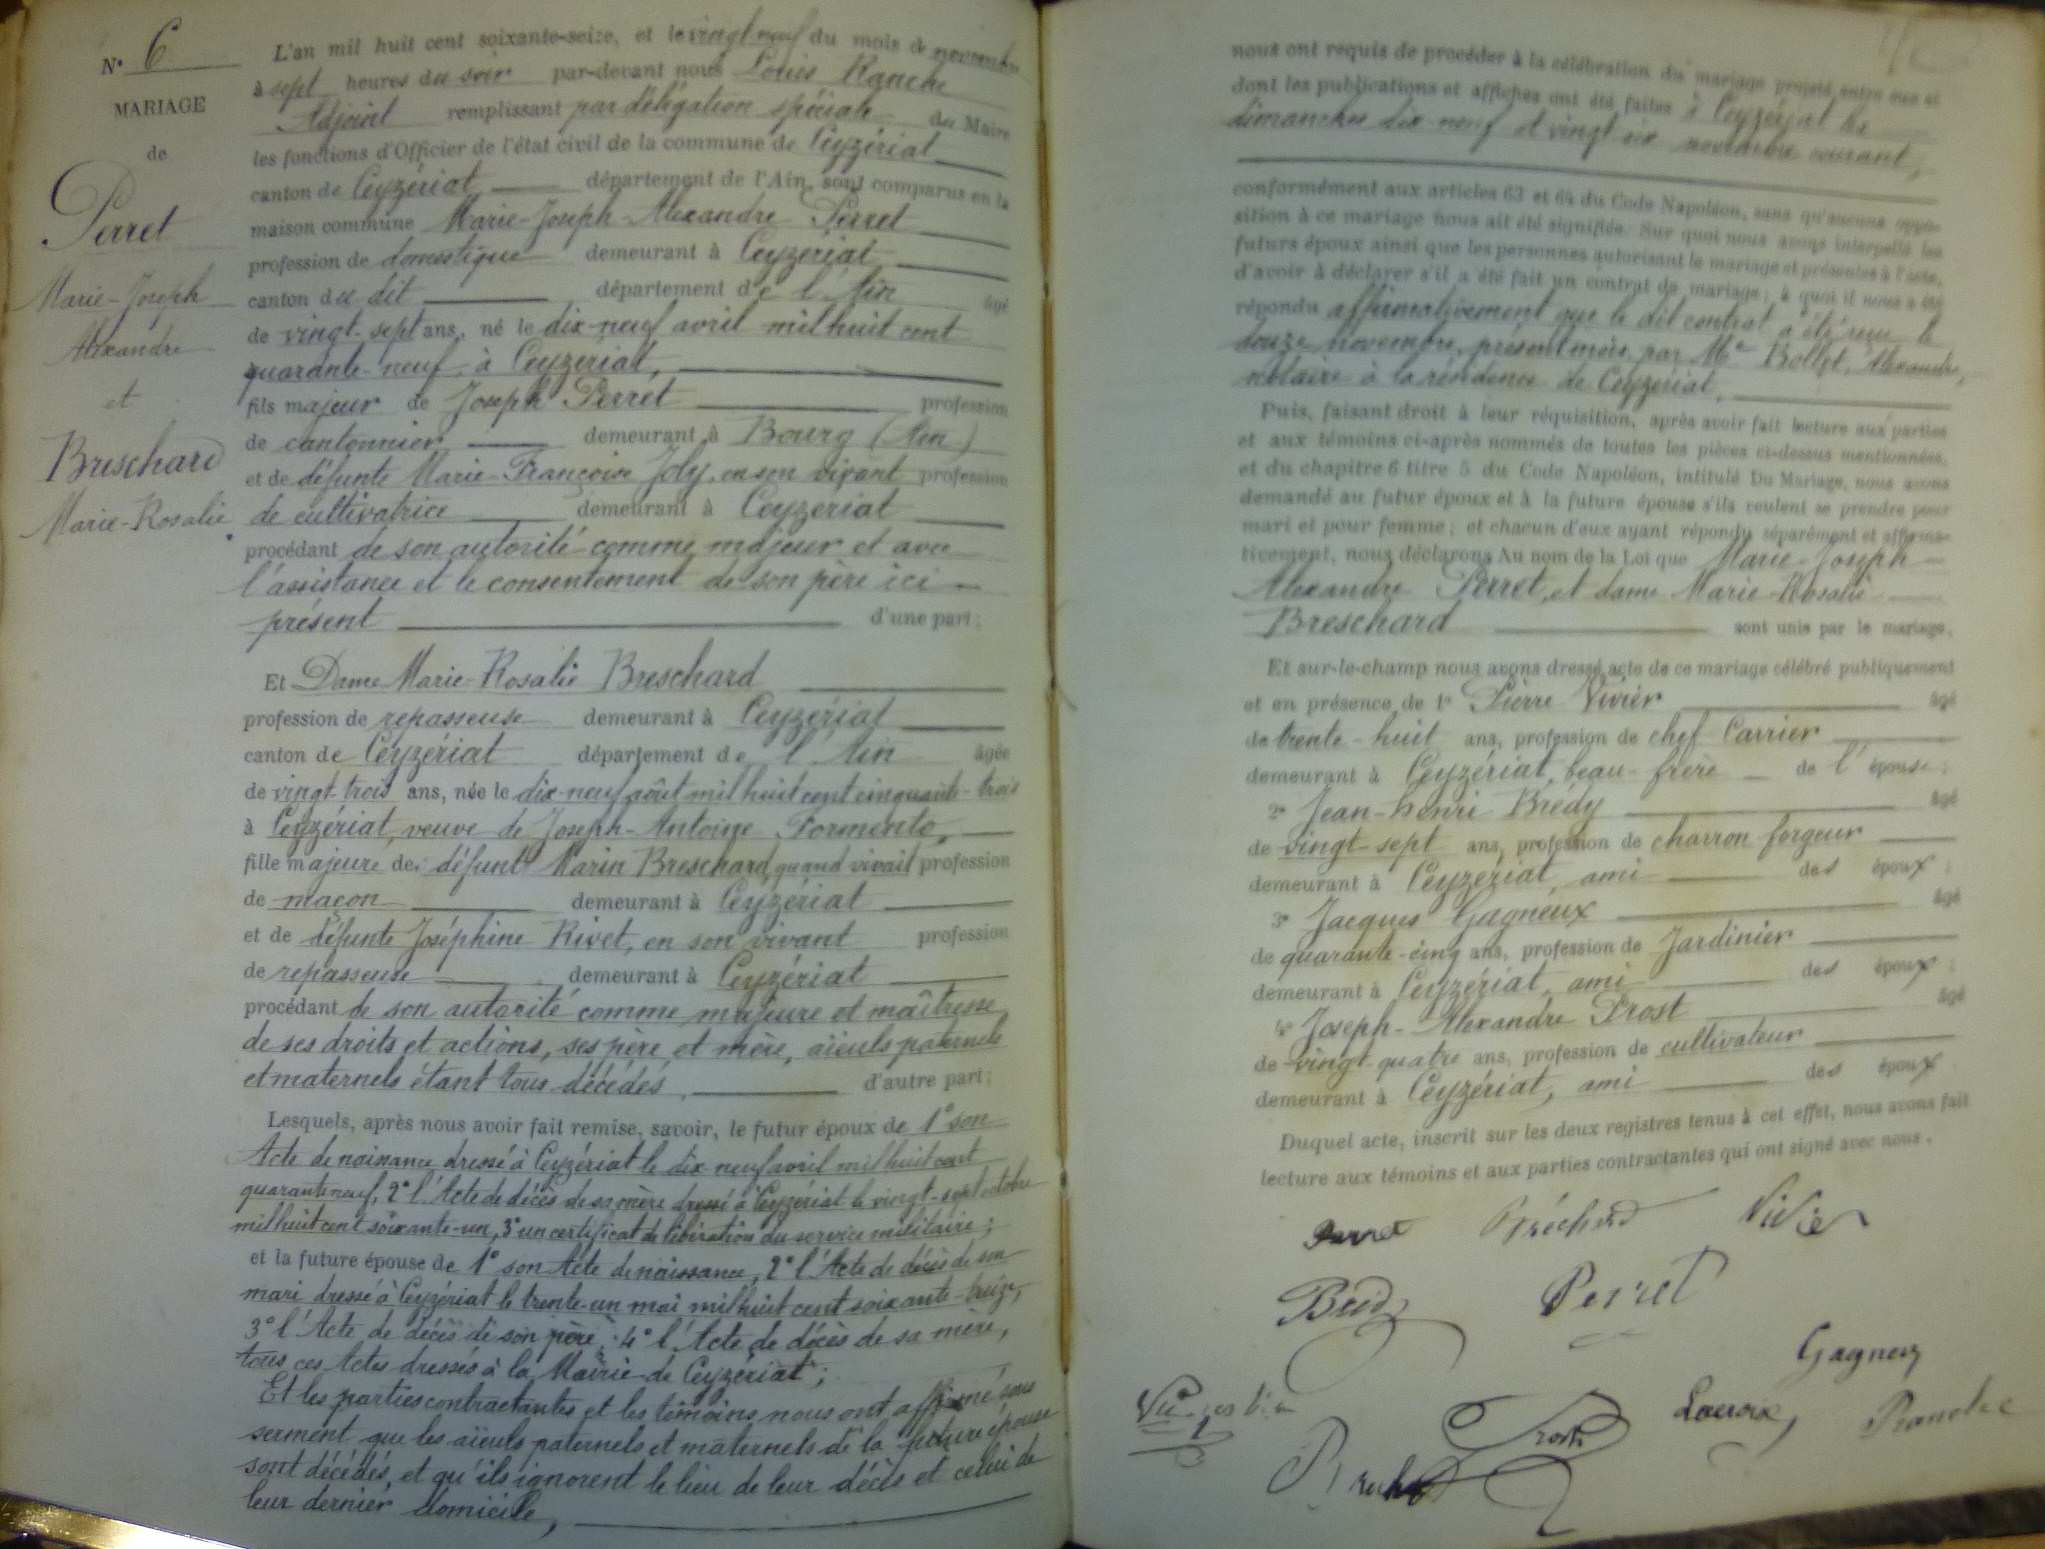 N° 6
MARIAGE
de
Perret
Marie-Joseph
Alexandre
et
Breschard
Marie-Rosalie
L'an mil huit cent soixante-seize, et le vingt neuf du mois de novembre
à sept heures du soir par-devant nous Louis Ranche
Adjoint remplissant par délégation spéciale du Maire
les fonctions d'Officier de l'état civil de la commune de Ceyzériat
canton de Ceyzériat département de l'Ain, sont comparus en la
maison commune Marie-Joseph-Alexandre Perret
profession de domestique demeurant à Ceyzériat
canton du dit département de l'Ain âgé
de vingt-sept ans, né le dix-neuf avril mil huit cent
quarante-neuf, à Ceyzériat,
fils majeur de Joseph Perret profession
de cantonnier demeurant à Bourg (Ain)
et de défunte Marie-Françoise Joly, en son vivant profession
de cultivatrice demeurant à Ceyzeriat
procédant de son autorité comme majeur et avec
l'assistance et le consentement de son père ici
présent d'une part;
Et Dame Marie-Rosalie Breschard
profession de repasseuse demeurant à Ceyzériat
canton de Ceyzériat département de l'Ain âgée
de vingt-trois ans, née le dix-neuf août mil huit cent cinquante-trois
à Ceyzériat, veuve de Joseph-Antoine Formento,
fille majeure de défunt Marin Breschard, quand vivait profession
de maçon demeurant à Ceyzériat
et de défunte Joséphine Rivet, en son vivant profession
de repasseuse demeurant à Ceyzériat
procédant de son autorité comme majeure et maîtresse
de ses droits et actions, ses père et mère, aïeuls paternels
et maternels étant tous décédés, d'autre part;
Lesquels, après nous avoir fait remise, savoir, le futur époux de 1° son
Acte de naissance dressé à Ceyzériat le dix neuf avril mil huit cent
quarante neuf, 2° l'Acte de décès de sa mère dressé à Ceyzériat le vingt-sept octobre
mil huit cent soixante-un, 3° un certificat de libération du service militaire;
et la future épouse de 1° son Acte de naissance, 2° l'Acte de décès de son
mari dressé à Ceyzériat le trente-un mai mil huit cent soixante-treize,
3° l'Acte de décès de son père; 4° l'Acte de décès de sa mère,
tous ces Actes dressés à la Mairie de Ceyzériat;
Et les parties contractantes et les témoins nous ont affirmé sous
serment que les aïeuls paternels et maternels de la future épouse
sont décédés, et qu'ils ignorent le lieu de leur décès et celui de
leur dernier domicile,
nous ont requis de procéder à la célébration du mariage projeté entre eux et
dont les publications et affiches ont été faites à Ceyzériat les
dimanches dix-neuf et vingt six novembre courant,
conformément aux articles 63 et 64 du Code Napoléon, sans qu'aucune oppo-
sition à ce mariage nous ait été signifiée. Sur quoi nous avons interpellé les
futurs époux ainsi que les personnes autorisant le mariage et présentes à l'acte,
d'avoir à déclarer s'il a été fait un contrat de mariage; à quoi il nous a été
répondu affirmativement que le dit contrat a été reçu le
douze novembre, présent mois, par Me Bollet, Alexandre,
notaire à la résidence de Ceyzériat,
Puis, faisant droit à leur réquisition, après avoir fait lecture aux parties
et aux témoins ci-après nommés de toutes les pièces ci-dessus mentionnées,
et du chapitre 6 titre 5 du Code Napoléon, intitulé Du Mariage, nous avons
demandé au futur époux et à la future épouse s'ils veulent se prendre pour
mari et pour femme; et chacun d'eux ayant répondu séparément et affirma-
tivement, nous déclarons Au nom de la Loi que Marie-Joseph-
Alexandre Perret, et dame Marie-Rosalie
Breschard sont unis par le mariage,
Et sur-le-champ nous avons dressé acte de ce mariage célébré publiquement
et en présence de 1° Pierre Vivier âgé
de trente-huit ans, profession de chef Carrier
demeurant à Ceyzériat, beau-frère de l'épouse;
2° Jean-henri Brédy âgé
de vingt-sept ans, profession de charron forgeur
demeurant à Ceyzériat, ami des époux;
3° Jacques Gagneux âgé
de quarante-cinq ans, profession de Jardinier
demeurant à Ceyzériat, ami des époux;
4° Joseph-Alexandre Prost âgé
de vingt-quatre ans, profession de cultivateur
demeurant à Ceyzériat, ami des époux
Duquel acte, inscrit sur les deux registres tenus à cet effet, nous avons fait
lecture aux témoins et aux parties contractantes qui ont signé avec nous.
Perret Bréchard Vivier
Brédy Perret
Gagneux
Prost Lacroix Ranche